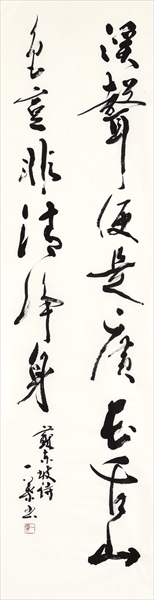 溪聲便是廣長舌山
色豈非清淨身
蘇東坡詩
一菜書